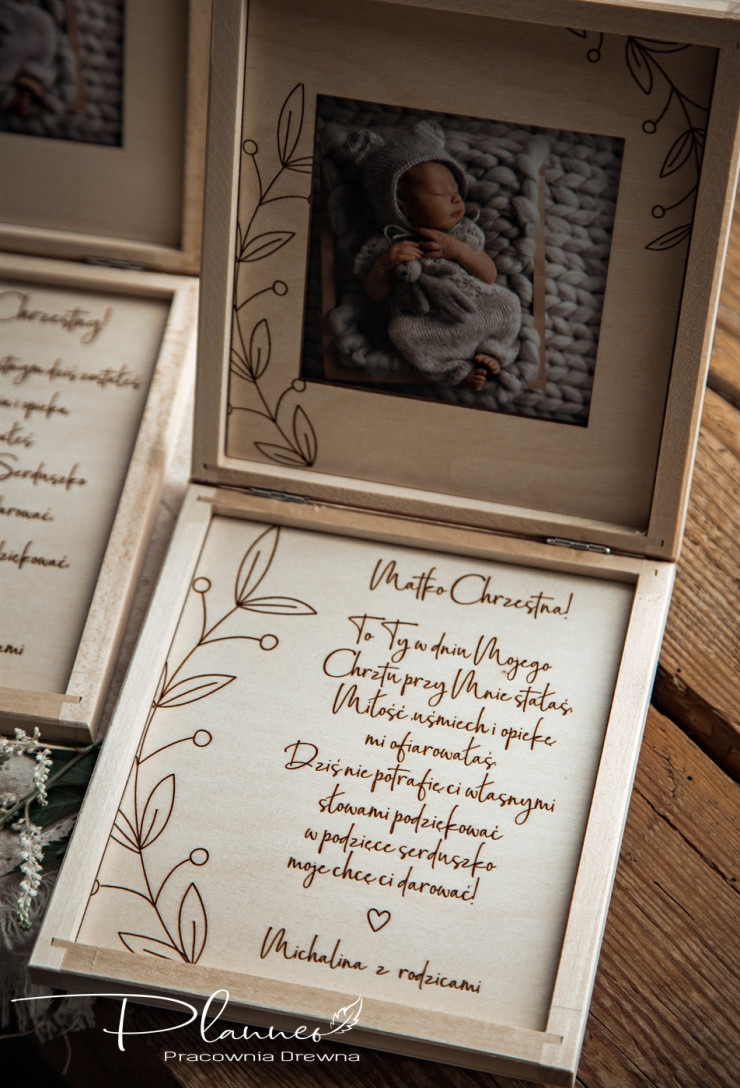 Chrzestny!
i opieka
Serduszko
darować
Matko Chrzestna!
To Ty w dniu Mojego
Chrztu przy Mnie stałaś,
Miłość, uśmiech i opiekę
mi ofiarowałaś.
Dziś nie potrafię ci własnymi
słowami podziękować
w podzięce serduszko
moje chcę ci darować!
Michalina z rodzicami
Planneo
Pracownia Drewna